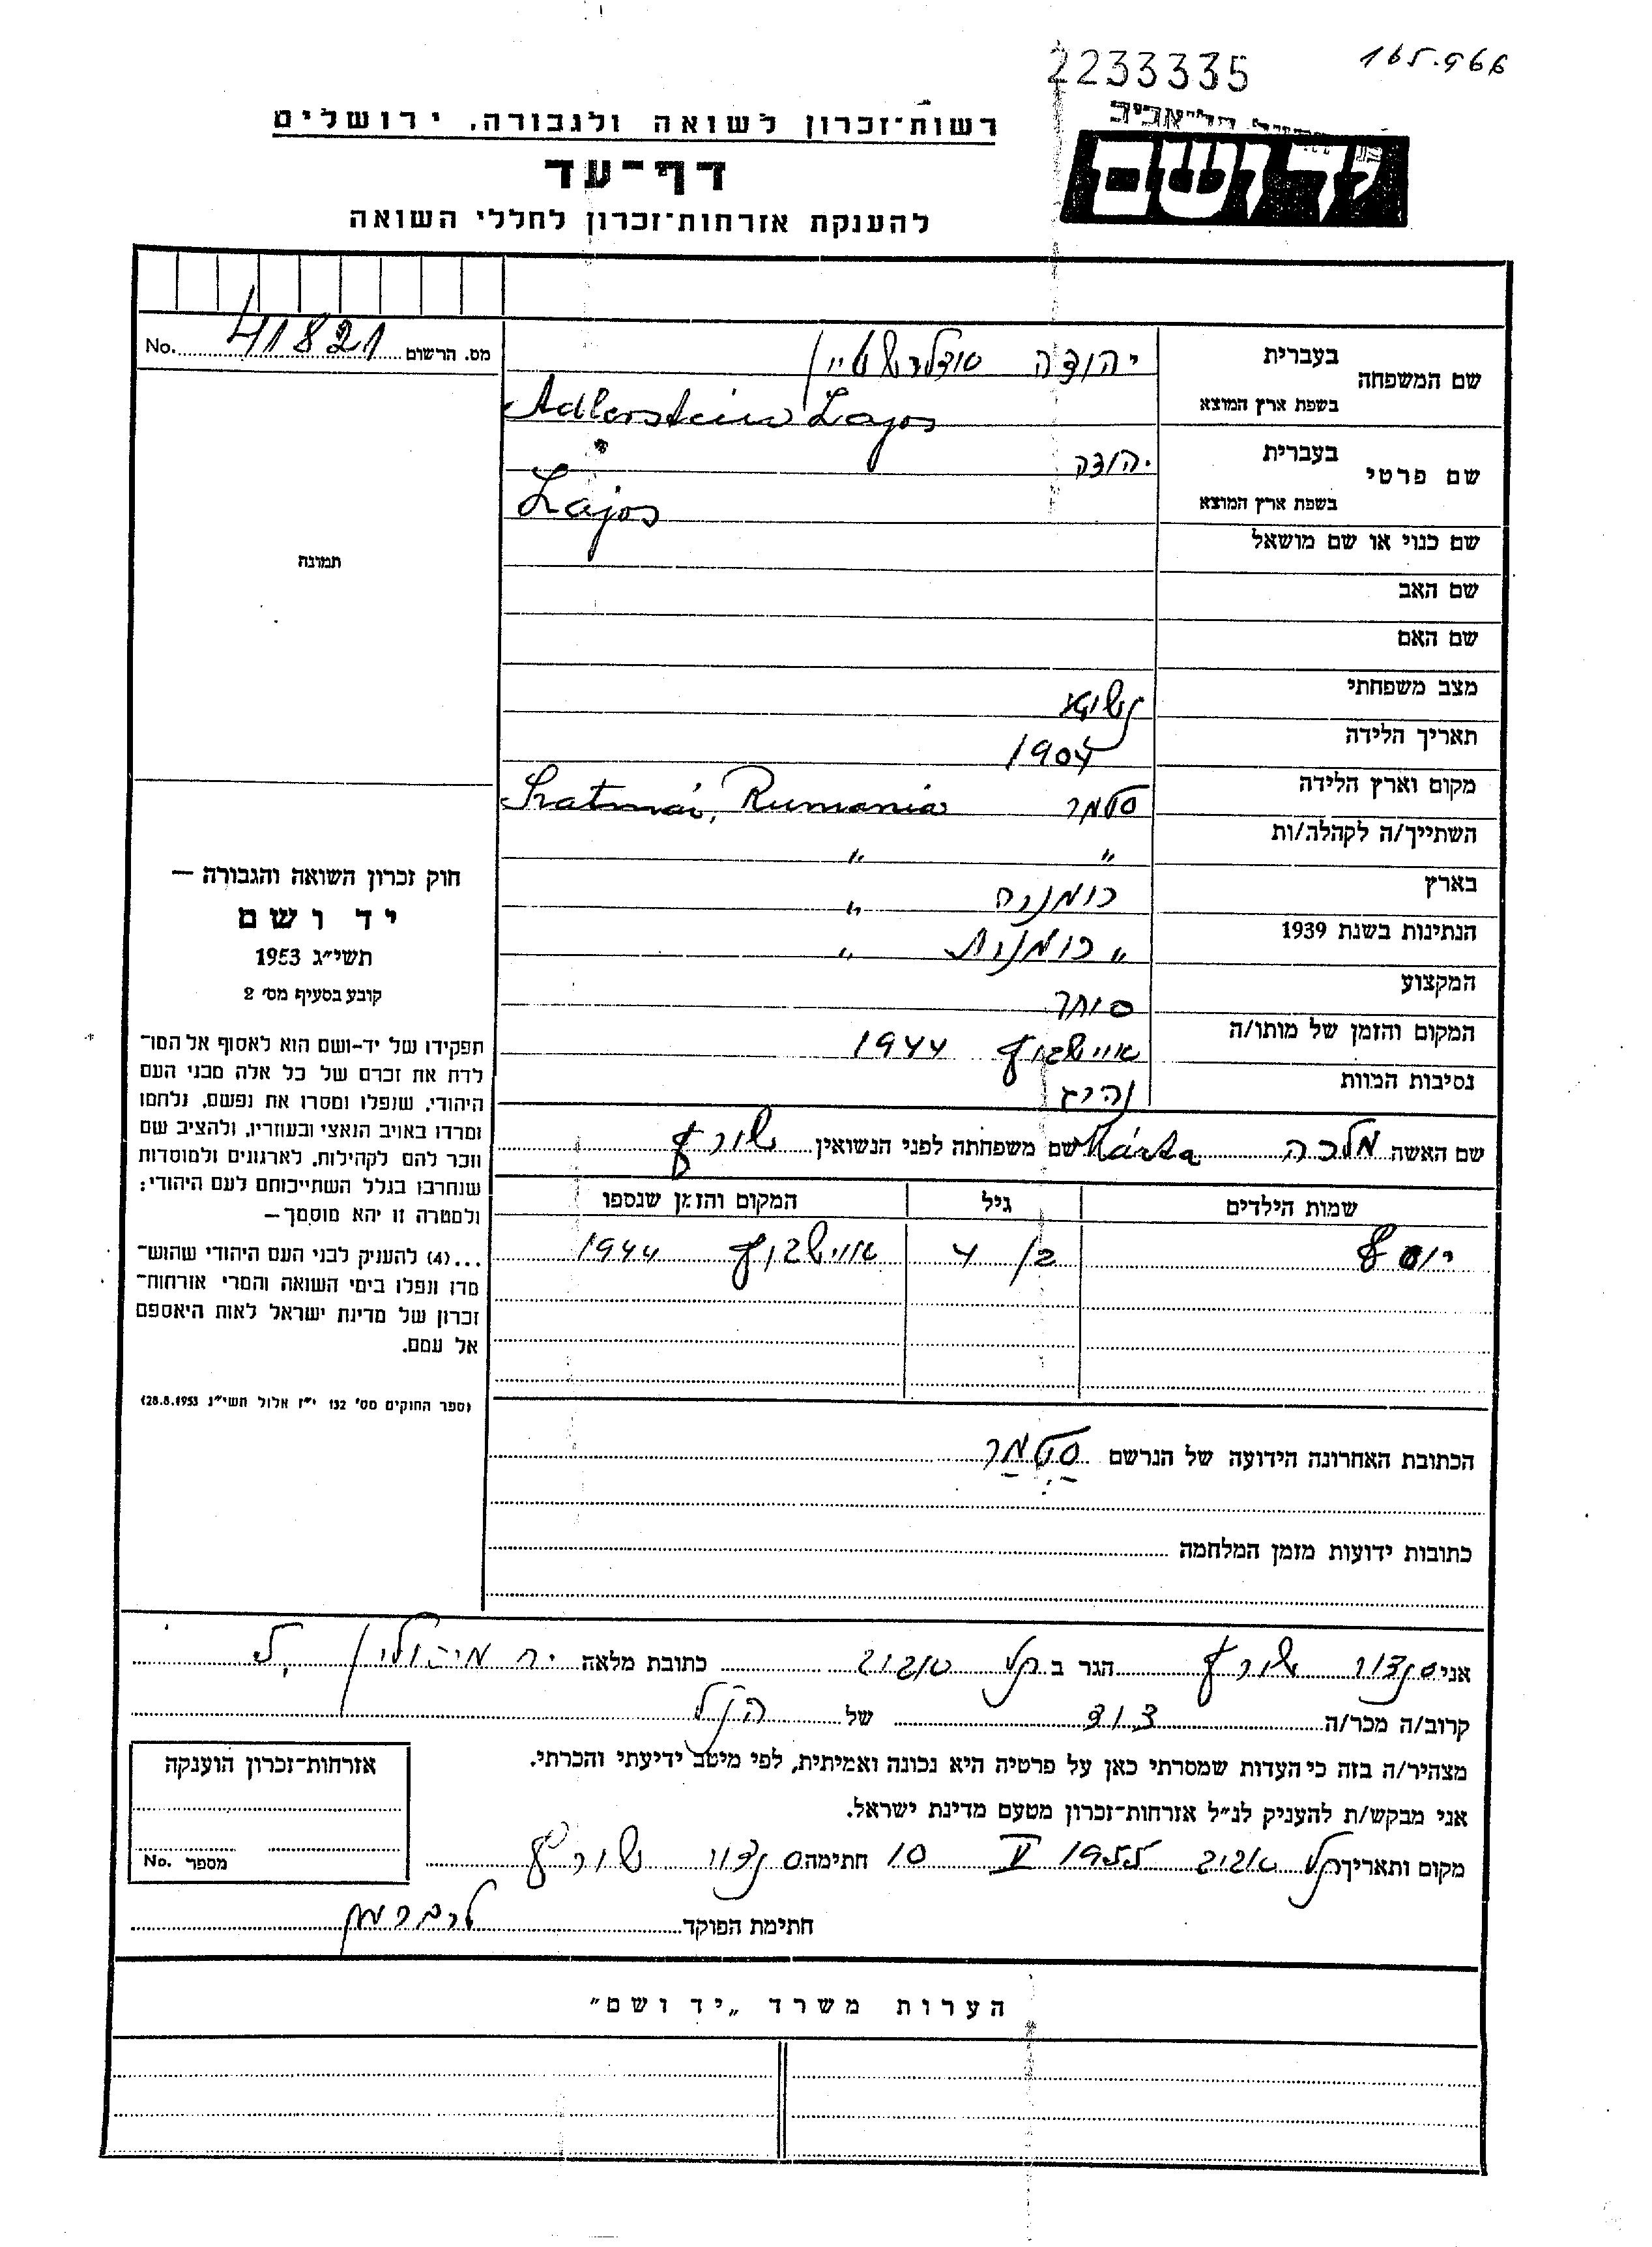 2233335
165.966
רשות־זכרון לשואה ולגבורה, ירושלים
יד ושם
דף־עד
להענקת אזרחות־זכרון לחללי השואה
מס. הרשום 41821 No.
שם המשפחה בעברית יהודה אדלרשטיין
בשפת ארץ המוצא Adlerstein Lajos
שם פרטי בעברית יהודה
בשפת ארץ המוצא Lajos
שם כנוי או שם מושאל
שם האב
שם האם
מצב משפחתי נשוי
תאריך הלידה 1904
מקום וארץ הלידה סטמר Szatmár, Rumania
השתייך/ה לקהלה/ות " "
בארץ רומניה "
הנתינות בשנת 1939 " רומנית "
המקצוע סוחר
המקום והזמן של מותו/ה אוישבוץ 1944
נסיבות המוות נהרג
תמונה
חוק זכרון השואה והגבורה —
יד ושם
תשי״ג 1953
קובע בסעיף מס׳ 2
תפקידו של יד-ושם הוא לאסוף אל המו־
לדת את זכרם של כל אלה מבני העם
היהודי, שנפלו ומסרו את נפשם, נלחמו
ומרדו באויב הנאצי ובעוזריו, ולהציב שם
וזכר להם לקהילות, לארגונים ולמוסדות
שנחרבו בגלל השתייכותם לעם היהודי;
ולמטרה זו יהא מוסמך—
...(4) להעניק לבני העם היהודי שהוש־
מדו ונפלו בימי השואה והמרי אזרחות־
זכרון של מדינת ישראל לאות היאספם
אל עמם.
(ספר החוקים מס׳ 132 י״ז אלול תשי״ג 28.8.1953)
שם האשה מלכה Márta שם משפחתה לפני הנשואין שורץ
שמות הילדים גיל המקום והזמן שנספו
יוסף 4 אוישבוץ 1944
הכתובת האחרונה הידועה של הנרשם סטמר
כתובות ידועות מזמן המלחמה
אני סנדור שורץ הגר ב תל אביב כתובת מלאה
קרוב/ה מכר/ה דוד של הנ״ל
מצהיר/ה בזה כי העדות שמסרתי כאן על פרטיה היא נכונה ואמיתית, לפי מיטב ידיעתי והכרתי.
אני מבקש/ת להעניק לנ״ל אזרחות־זכרון מטעם מדינת ישראל.
מקום ותאריך תל אביב 1955 V 10 חתימה סנדור שורץ
חתימת הפוקד ליברמן
אזרחות־זכרון הוענקה
מספר No.
הערות משרד „יד ושם״